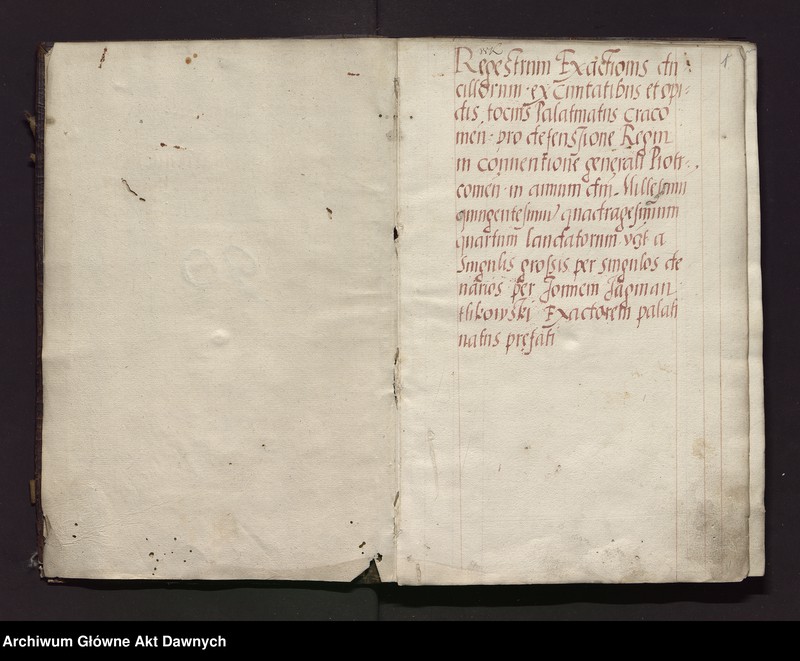 Regestrum Exactionis du
cillorum ex Civitatibus et opi
dis tocius Palatinatus Craco
vien. pro defensione Regni
in conventione generali Piotr
covien in annum dni Millesimu
quingentesimu quadragesimum
quartum laudatorum vz a
singulis grossis per singulos de
narios per
Exactorem palati
natus prefati
1
Archiwum Główne Akt Dawnych